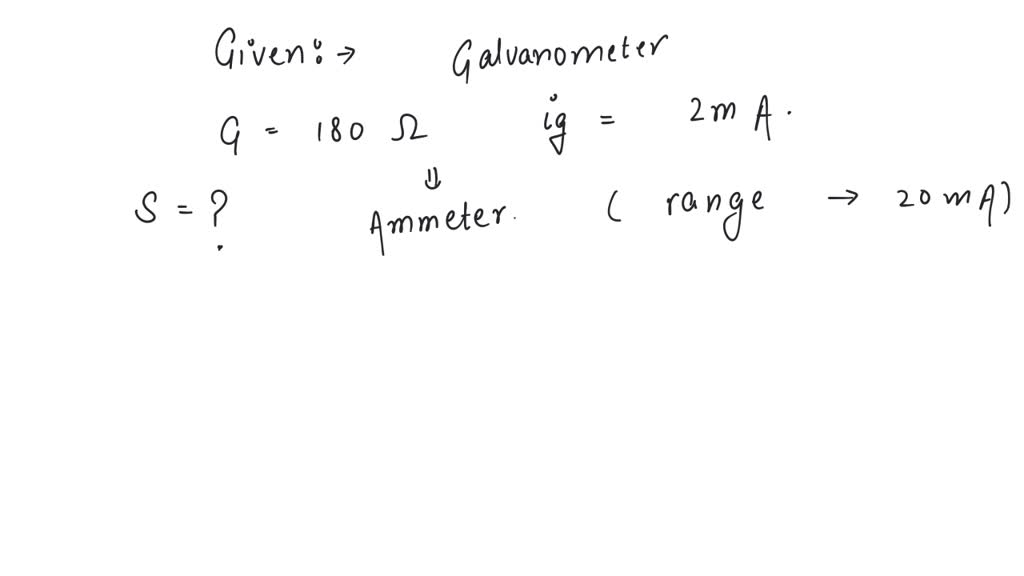 Given:→ Galvanometer
G = 180 Ω ig = 2mA.
⇓
S = ? Ammeter. ( range → 20mA)